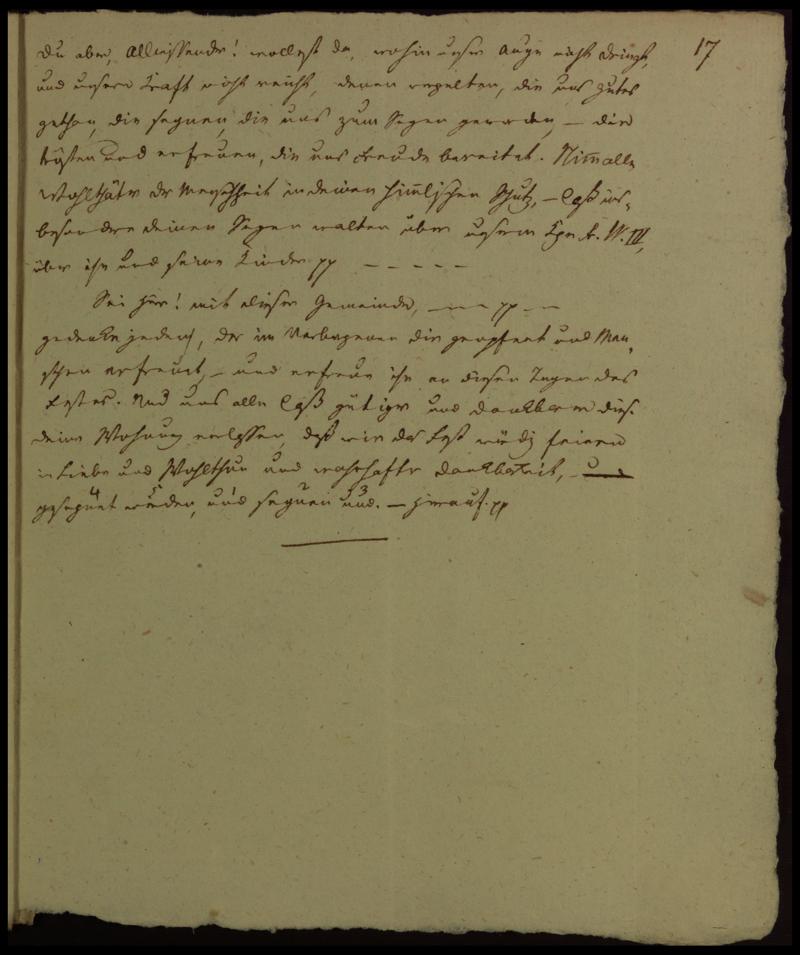 17
Du aber, Allwissender! wollest da, wohin unser Auge nicht dringt,
und unsere Kraft nicht reicht, denen vergelten, die uns gutes
gethan, die segnen, die uns zum Segen geworden, – die
trösten und erfreuen, die uns Freude bereitet. Nim̅ alle
Wohlthäter der Menschheit in deinen him̅lischen Schutz, – laß ins-
besondere deinen Segen walten über unserm Kge F. W. III,
über ihn und seine Kinder pp – – – – –
Sei Herr! mit dieser Gemeinde, – – – pp – –
gedenke jedes, der im Verborgenen dir geopfert und Men-
schen erfreut, – und erfreue ihn an diesen Tagen des
Festes. Und uns alle laß gütiger und dankbarer diese
deine Wohnung verlassen, daß wir das Fest würdig feiern
in Liebe und Wohlthun und wahrhafter Dankbarkeit, – und
gesegnet werden, und segnen und. – hierauf. pp